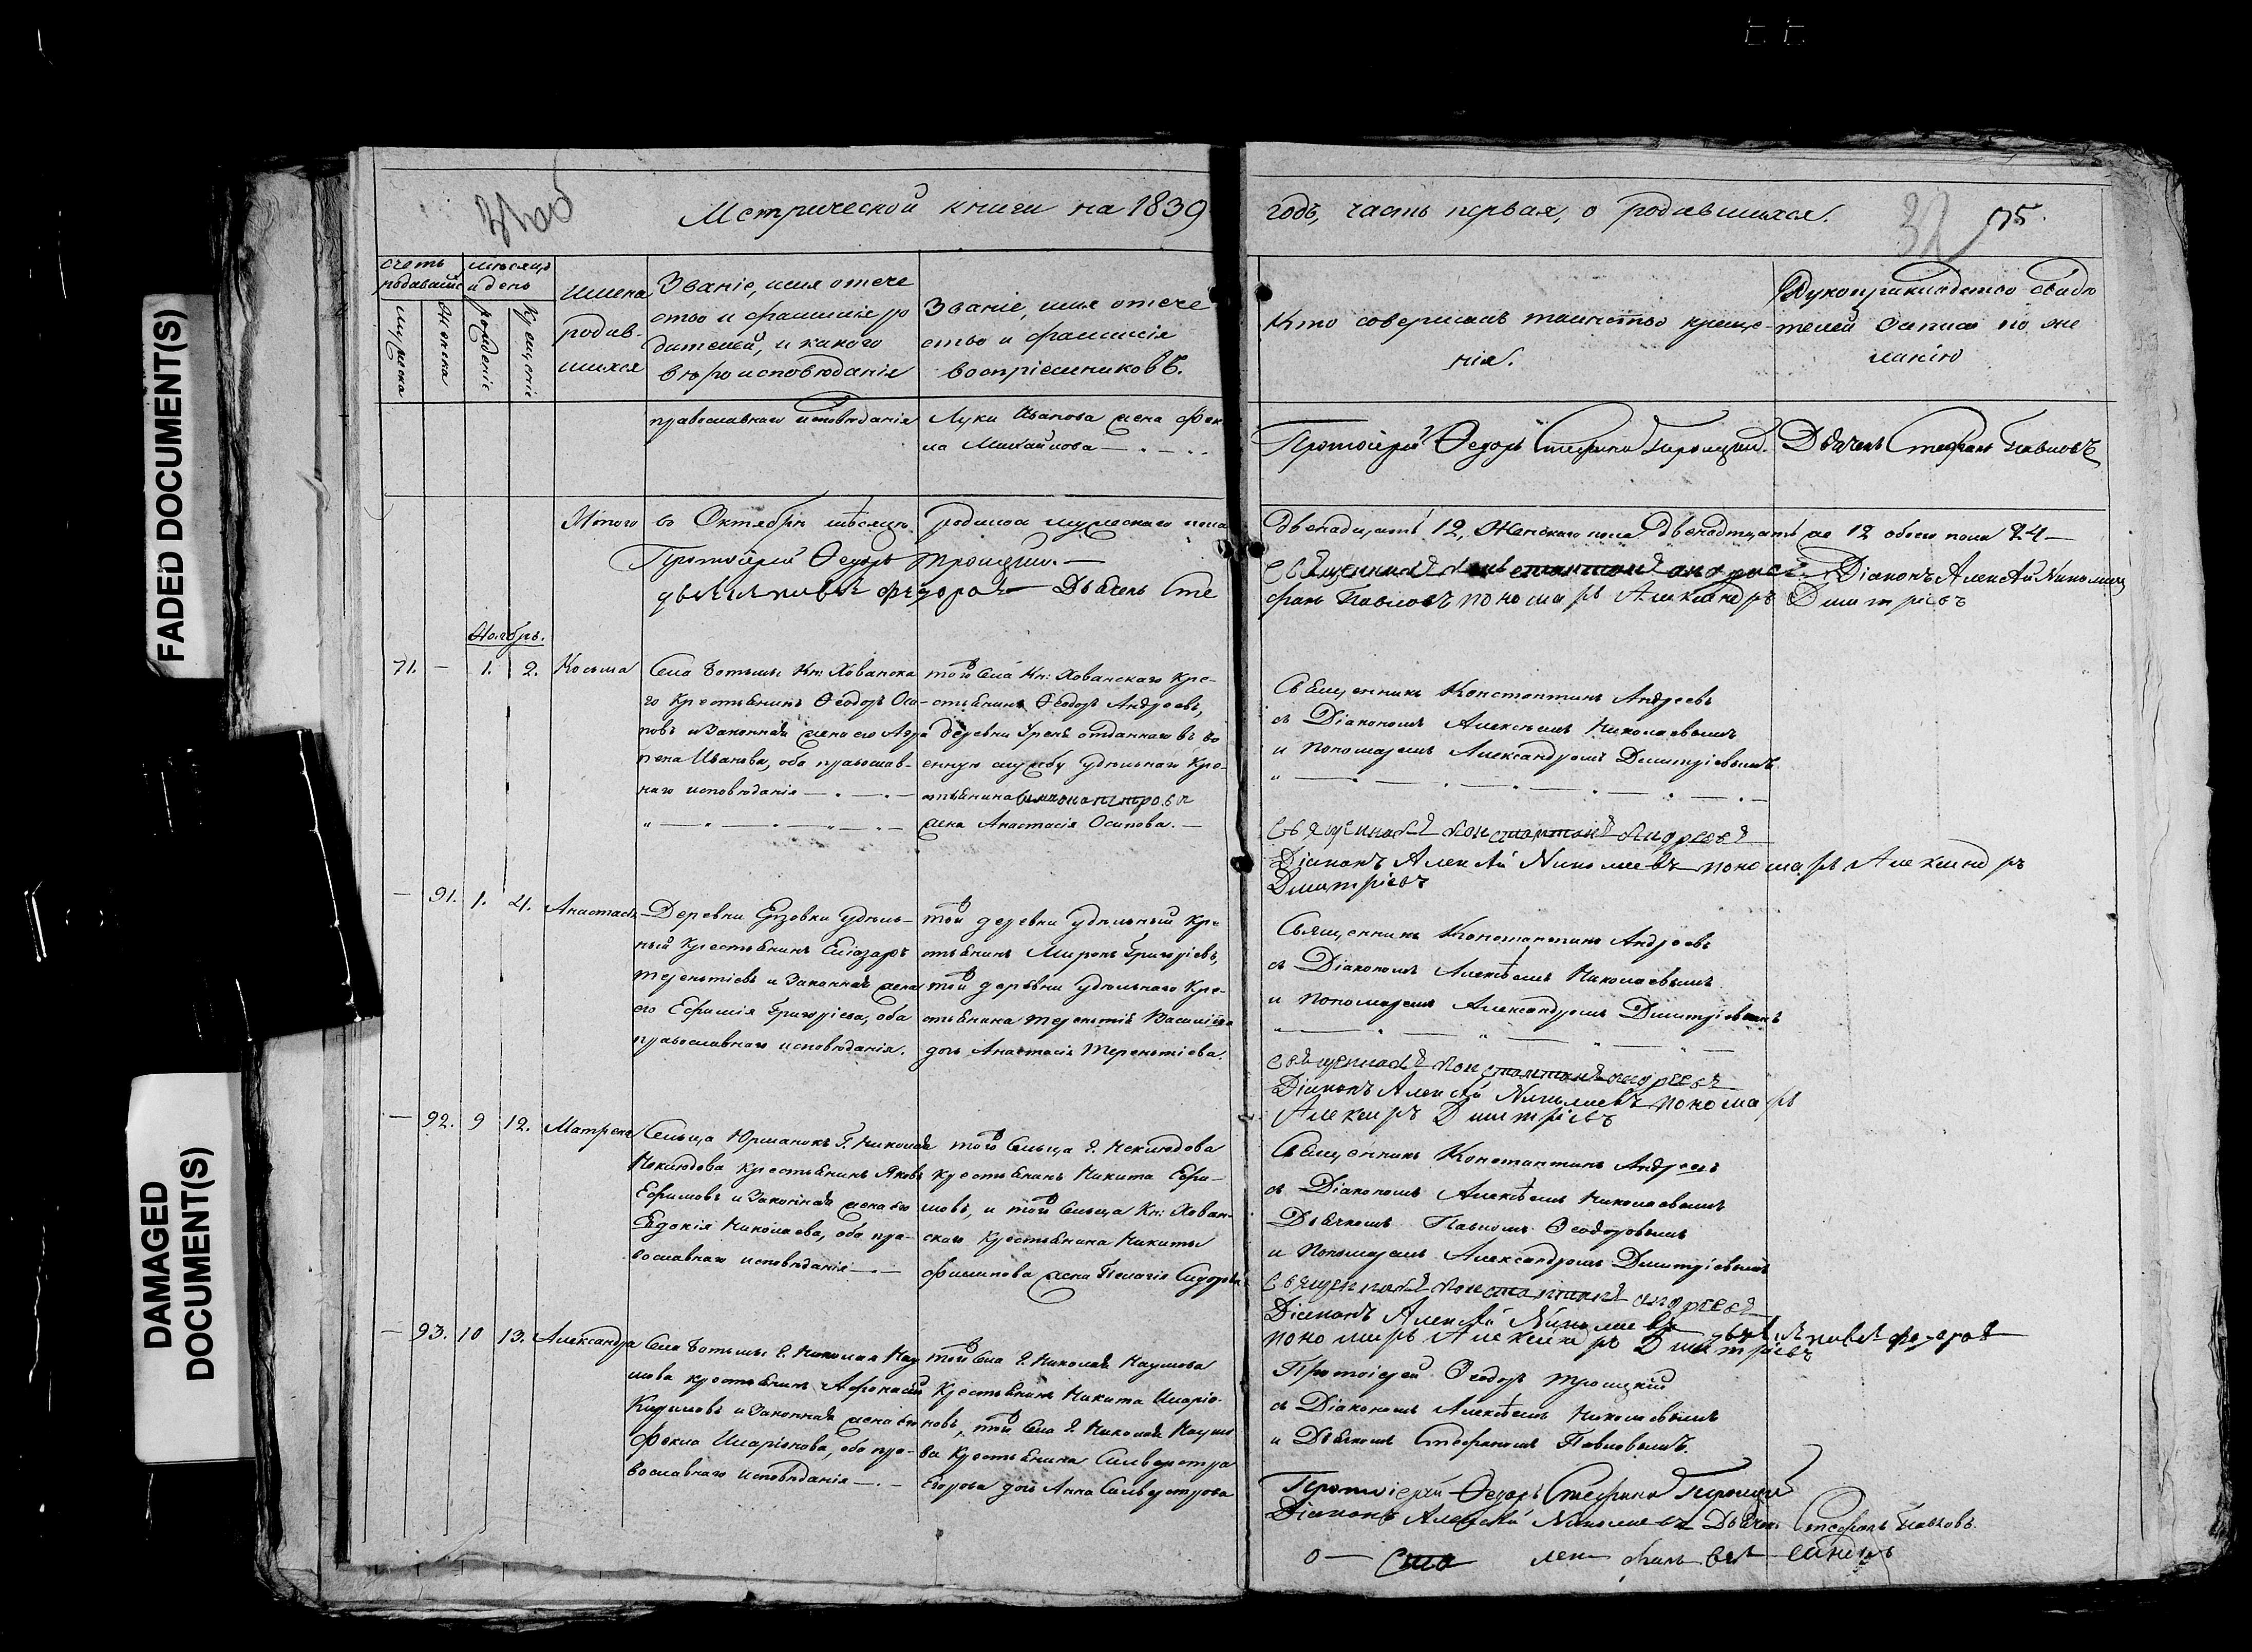 FADED DOCUMENT(S)
DAMAGED
DOCUMENT(S)
Метрической книги на 1839
годъ, часть первая, о родившихся.
32
75.
счетъ
родивших
мужеска
женска
мѣсяцъ
и день
рожденіе
крещеніе
имена
родив-
шихся
Званіе, имя отече
ство и фамилія ро
дителей, и какого
вѣроисповѣданія
Званіе, имя отече
ство и фамилія
воспріемниковъ.
Кто совершалъ таинство креще-
нія.
Рукоприкладство свидѣ
телей записи по же
ланію
православнаго исповѣданія
Луки Иванова жена Фек
ла Михайлова
Протоіерей Ѳедоръ Стефановъ Троицкій.
Дьячекъ Стефанъ Павловъ
Итого во Октябрѣ мѣсяцѣ родилося мужескаго пола
двенадцать 12, Женскаго пола двенадцать же 12 обоего пола 24
Протоіерей Ѳедоръ Троицкій.
Священникъ Константинъ Андреевъ Діаконъ Алексѣй Николаевъ
дьячекъ павелъ федоровъ Дьячекъ Сте
фанъ Павловъ пономарь Александръ Дмитріевъ
Ноябрь.
71. — 1. 2. Косьма
Села Ботьмы Кн: Хованска
го крестьянинъ Ѳеодоръ Оси-
повъ и законная жена его Агра
пена Иванова, оба православ-
наго исповѣданія
того села Кн: Хованскаго Кре-
стьянинъ Ѳеодоръ Андреевъ,
деревни Урень отданнаго въ во
енную службу удѣльнаго Кре-
стьянина Симиона петрова
жена Анастасія Осипова.
Священникъ Константинъ Андреевъ
съ Діакономъ Алексѣемъ Николаевымъ
и Пономаремъ Александромъ Димитріевымъ
Священникъ Константинъ Андреевъ
Діаконъ Алексѣй Николаевъ пономарь Александръ
Дмитріевъ
— 91. 1. 4. Анастасія
Деревни Ерзовки удѣль-
ный крестьянинъ Еліазаръ
Терентіевъ и законная жена
его Ефимія Григорьева, оба
православнаго исповѣданія.
той деревни удѣльный Кре
стьянинъ Миронъ Григорьевъ,
той деревни удѣльнаго Кре-
стьянина Терентія Васильева
дочь Анастасія Терентіева.
Священникъ Константинъ Андреевъ
съ Діакономъ Алексѣемъ Николаевымъ
и Пономаремъ Александромъ Димитріевымъ
Священникъ Константинъ Андреевъ
Діаконъ Алексѣй Николаевъ пономарь
Александръ Дмитріевъ
— 92. 9 12. Матрена
Сельца Юрманокъ Г. Николая
Неклюдова крестьянинъ Яковъ
Ефимовъ и законная жена его
Евдокія Николаева, оба пра-
вославнаго исповѣданія
того сельца Г. Неклюдова
крестьянинъ Никита Ефи-
мовъ, и того сельца Кн: Хован-
скаго крестьянина Никиты
Филипова жена Пелагія Сидорова
Священникъ Константинъ Андреевъ
съ Діакономъ Алексѣемъ Николаевымъ
Дьячкомъ Павломъ Ѳеодоровымъ
и Пономаремъ Александромъ Димитріевымъ
Священникъ Константинъ Андреевъ
Діаконъ Алексѣй Николаевъ дьячекъ павелъ федоровъ
пономарь Александръ Дмитріевъ
— 93. 10 13. Александра
Села Ботьмы Г. Николая Нау
мова крестьянинъ Афонасій
Кирилловъ и законная жена его
Фекла Иларіонова, оба пра-
вославнаго исповѣданія
того села Г. Николая Наумова
Крестьянинъ Никита Иларіо-
новъ, того села Г. Николая Наумо
ва крестьянина Сильвестра
Егорова дочь Анна Сильвестрова
Протоіерей Ѳеодоръ Троицкій
съ Діакономъ Алексѣемъ Николаевымъ
и Дьячкомъ Стефаномъ Павловымъ.
Протоіерей Ѳедоръ Стефановъ Троицкій
Діаконъ Алексѣй Николаевъ Дьячекъ Стефанъ Павловъ.